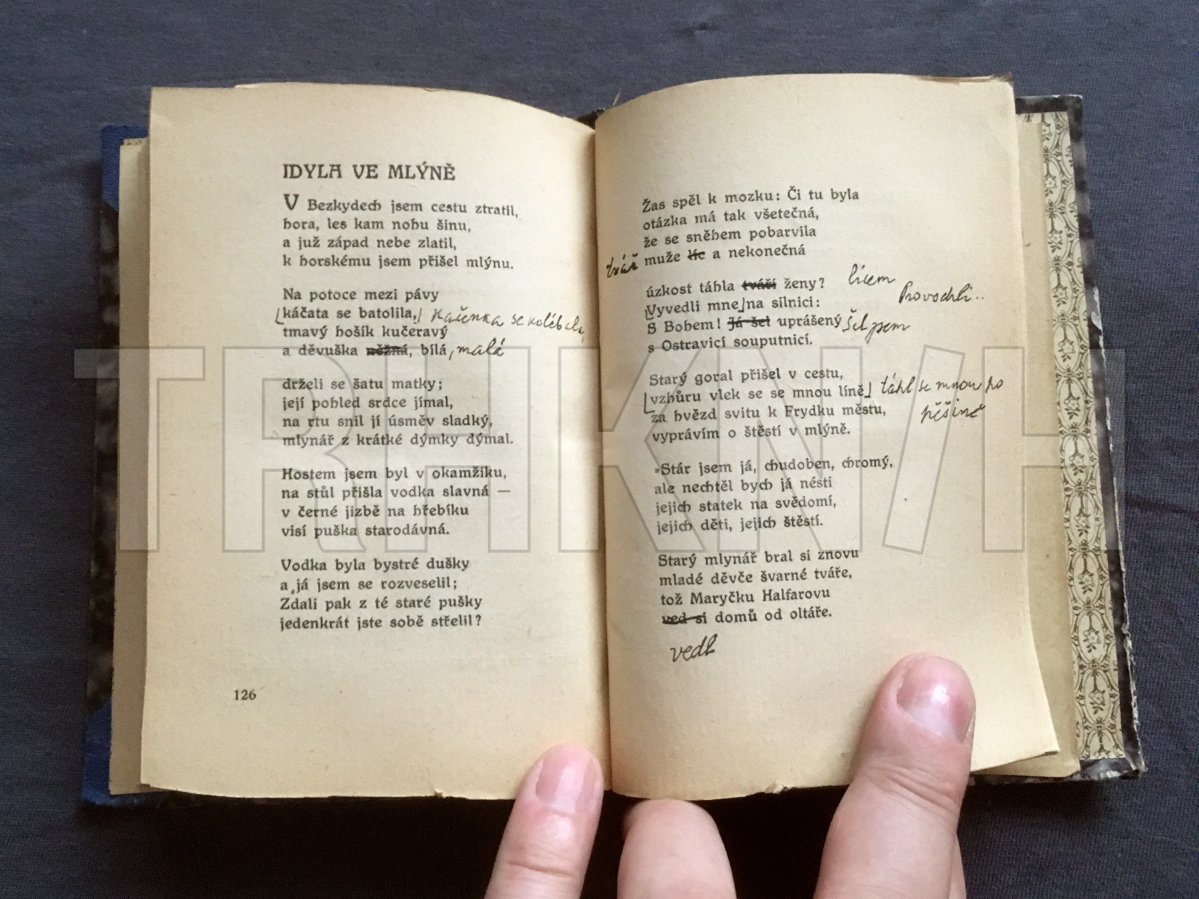 IDYLA VE MLÝNĚ
V Bezkydech jsem cestu ztratil,
hora, les kam nohu šinu,
a již západ nebe zlatil,
k horskému jsem přišel mlýnu.
Na potoce mezi pávy
káčata se batolila, kačenka se
tmavý hošík kučeravý
a děvuška něžná, bílá, malá
drželi se šatu matky;
její pohled srdce jímal,
na rtu snil jí úsměv sladký,
mlynář z krátké dýmky dýmal.
Hostem jsem byl v okamžiku,
na stůl přišla vodka slavná —
v černé jizbě na hřebíku
visí puška starodávná.
Vodka byla bystré dušky
a já jsem se rozveselil;
Zdali pak z té staré pušky
jedenkrát jste sobě střelil?
126
Žas spěl k mozku: Či tu byla
otázka má tak všetečná,
že se sněhem pobarvila
tvář muže líc a nekonečná
úzkost táhla tváří ženy? lícem
Vyvedli mne na silnici: Provodili..
S Bohem! Já šel uprášený šel jsem
s Ostravicí souputnicí.
Starý goral přišel v cestu,
vzhůru vlek se se mnou líně táhl se mnou po
za hvězd svitu k Frydku městu, pěšině
vyprávím o štěstí v mlýně.
»Stár jsem já, chudoben, chromý,
ale nechtěl bych já nésti
jejich statek na svědomí,
jejich děti, jejich štěstí.
Starý mlynář bral si znovu
mladé děvče švarné tváře,
tož Maryčku Halfarovu
ved si domů od oltáře.
vedl
TRHKNIH